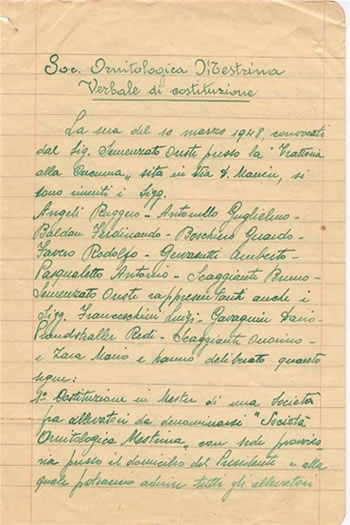 Soc. Ornitologica Mestrina
Verbale di costituzione
La sera del 10 marzo 1948, convocati
dal Sig. Semenzato Oreste presso la "Trattoria
alla Cucuma„ sita in Via D. Manin, si
sono riuniti i Sigg.
Angeli Ruggero - Antonello Guglielmo -
Baldan Ferdinando - Boschiero Guardo -
Favero Rodolfo - Gervasutti Umberto -
Pasqualetto Antonio - Scaggiante Bruno -
Semenzato Oreste rappresentanti anche i
Sigg. Franceschini Luigi - Gavagnin Dario -
Redi - Scaggiante Onorino -
e Zara Mario e hanno deliberato quanto
segue:
1° Costituzione in Mestre di una Società
fra allevatori da denominarsi "Società
Ornitologica Mestrina„ con sede provviso-
ria presso il domicilio del Presidente e alla
quale potranno aderire tutti gli allevatori